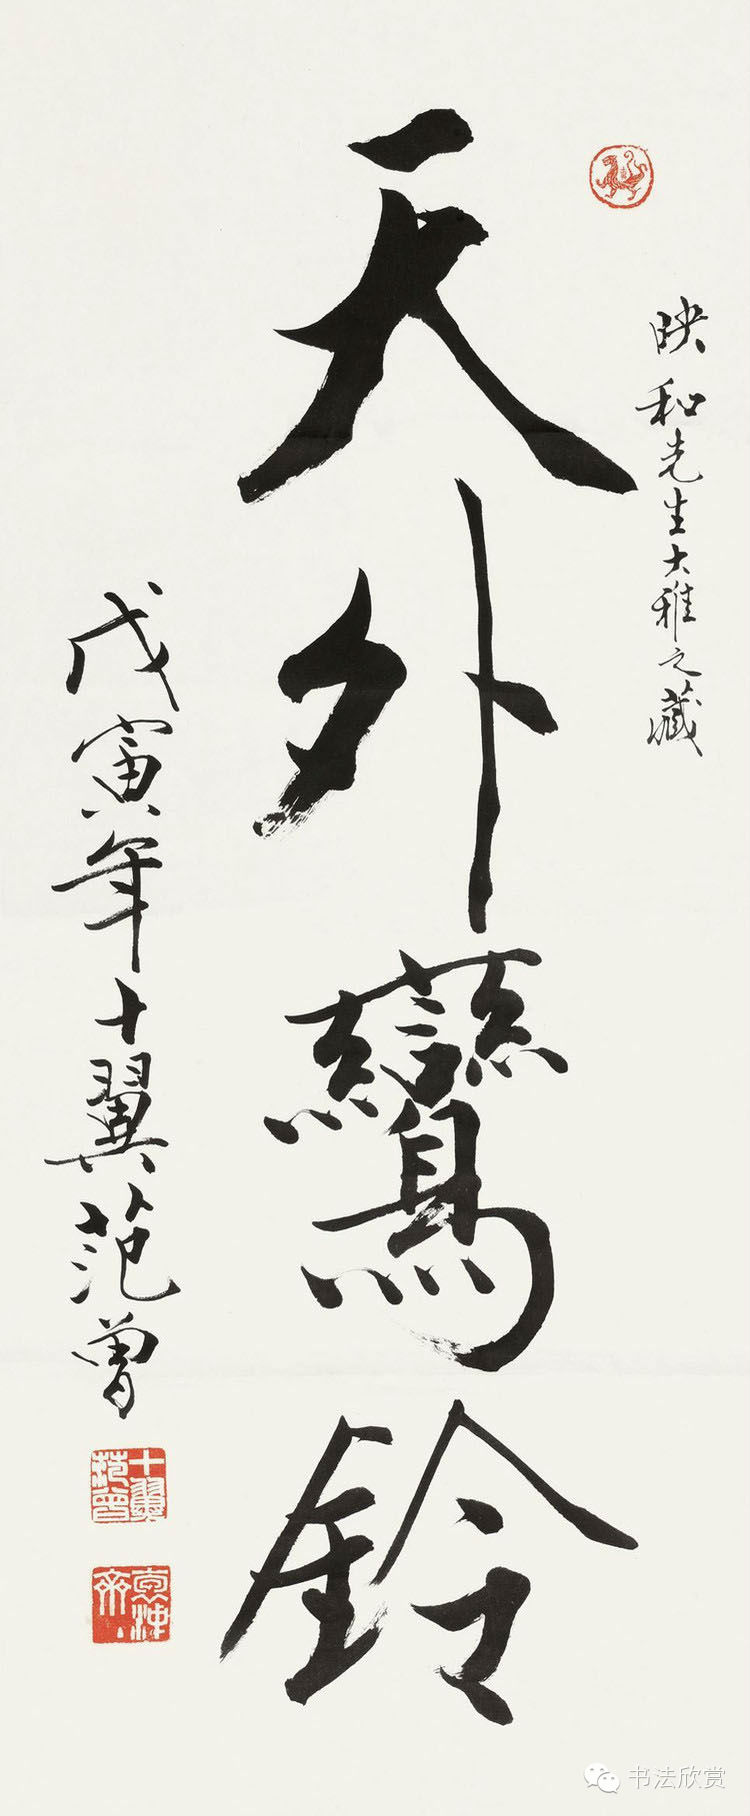 映和先生大雅之藏
天外鸞鈴
戊寅年十翼范曾
十翼范曾
书法欣赏